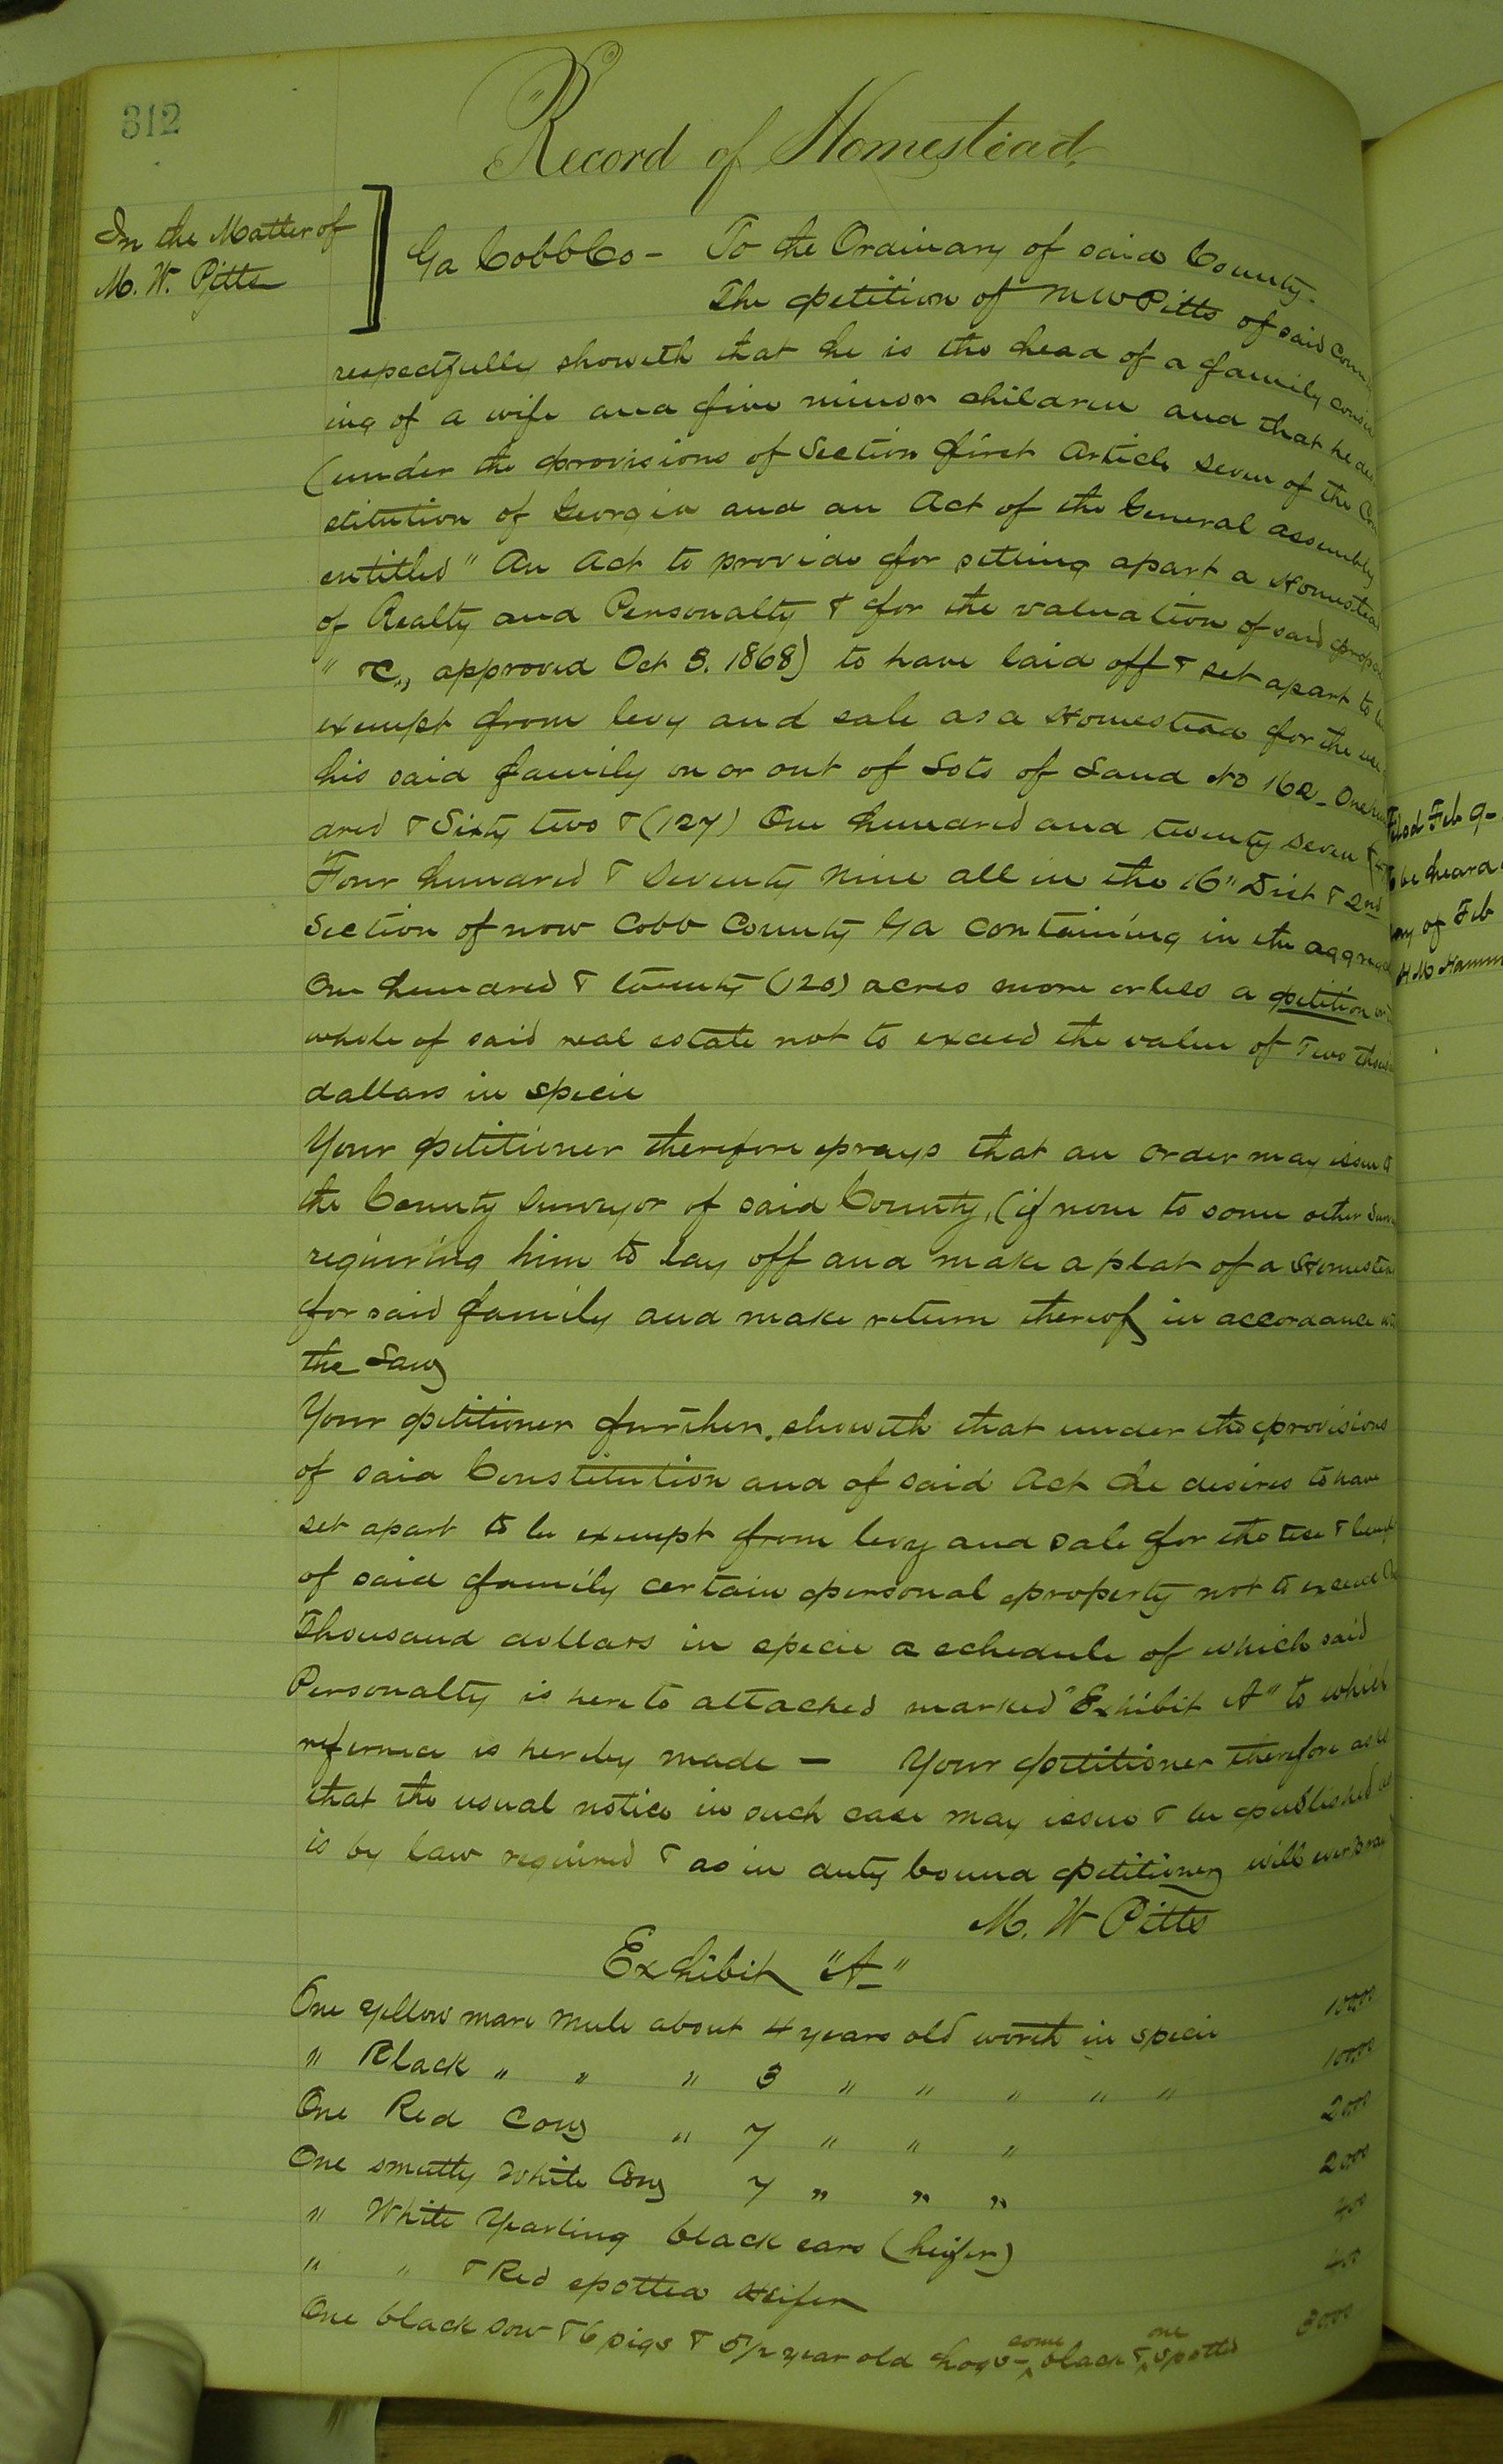 312
Record of Homestead,
In the Matter of
M. W. Pitts
Ga Cobb Co – To the Ordinary of said County.
The petition of M W Pitts of said
respectfully showeth that he is the head of a family
ing of a wife and five minor children and that he
(under the provisions of Section first Article seven of the Con
stitution of Georgia and an Act of the General assembly
entitled " An Act to provide for setting apart a Homestead
of Realty and Personalty & for the valuation of said
" &c., approved Oct 3. 1868) to have laid off & set apart to
exempt from levy and sale as a Homestead for the
his said family on or out of Lots of Land No 162 – One
dred & Sixty two & (127) One hundred and twenty seven
Four hundred & Seventy Nine all in the 16" Dist & 2nd
Section of now Cobb County Ga containing in the
One hundred & twenty (120) acres more or less a petition
whole of said real estate not to exceed the value of Two
dollars in specie
Your petitioner therefore prays that an order may issue to
the County Surveyor of said County, (if none to some other
requiring him to lay off and make a plat of a
for said family and make return thereof in accordance
the Law
Your petitioner further, showeth that under the provisions
of said Constitution and of said Act he desires to have
set apart to be exempt from levy and sale for the use &
of said family certain personal property not to exceed
Thousand dollars in specie a schedule of which said
Personalty is hereto attached marked "Exhibit A" to which
refernce is hereby made – Your petitioner therefore asks
that the usual notice in such case may issue & be published as
is by law required & as in duty bound petitioner will ever pray
M. W Pitts
Exhibit "A"
One yellow mare mule about 4 years old worth in specie 100.00
" Black " " " 3 " " " " " 100.00
One Red Cow " 7 " " " 20.00
One smutty White Cow 7 " " " 20.00
" White Yearling black ears (heifer) 4.00
" " & Red spotted Heifer 4.00
One black sow & 6 pigs & 5 1/2 year old hogs – some black & one spotted 30.00
Filed Feb 9 –
be heard
of Feb
H M Hamm